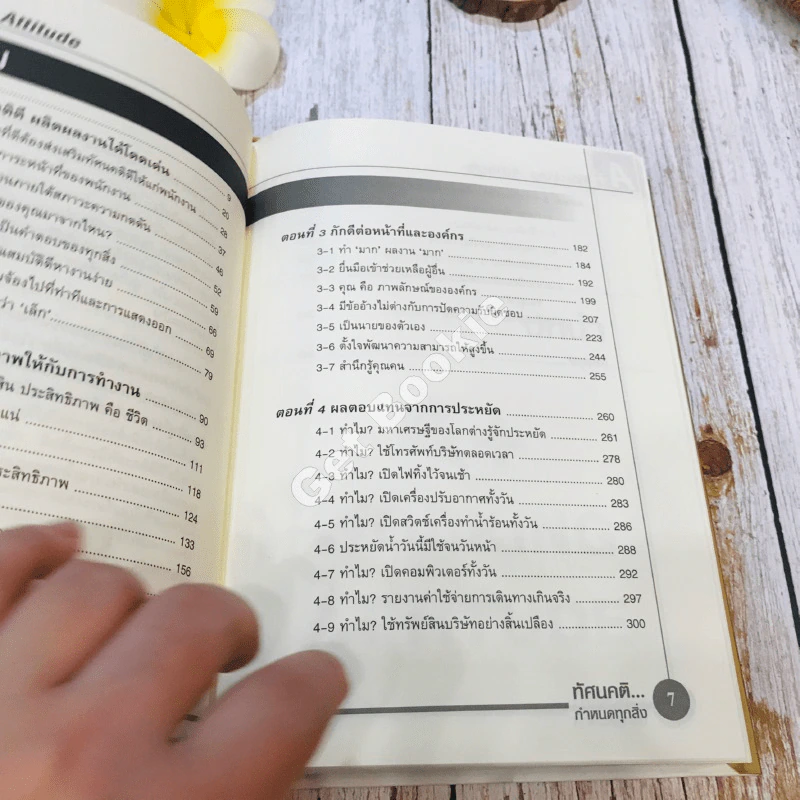 Attitude
ผลิตผลงานได้โดดเด่น
9
ที่ดีต้องส่งเสริมทัศนคติดีให้แก่พนักงาน 20
ภาระหน้าที่ของพนักงาน 28
ภายใต้สภาวะความกดดัน 37
ของคุณมาจากไหน? 46
เป็นคำตอบของทุกสิ่ง 52
สมบัติดีหางานง่าย 59
จ้องไปที่ท่าทีและการแสดงออก 66
ว่า ‘เล็ก’ 69
79
ภาพให้กับการทำงาน 90
ประสิทธิภาพ คือ ชีวิต 93
แน่ 111
118
ประสิทธิภาพ 124
133
156
ตอนที่ 3 ภักดีต่อหน้าที่และองค์กร 182
3-1 ทำ ‘มาก’ ผลงาน ‘มาก’ 184
3-2 ยื่นมือเข้าช่วยเหลือผู้อื่น 192
3-3 คุณ คือ ภาพลักษณ์ขององค์กร 199
3-4 มีข้ออ้างไม่ต่างกับการปัดความรับผิดชอบ 207
3-5 เป็นนายของตัวเอง 223
3-6 ตั้งใจพัฒนาความสามารถให้สูงขึ้น 244
3-7 สำนึกรู้คุณคน 255
ตอนที่ 4 ผลตอบแทนจากการประหยัด 260
4-1 ทำไม? มหาเศรษฐีของโลกต่างรู้จักประหยัด 261
4-2 ทำไม? ใช้โทรศัพท์บริษัทตลอดเวลา 278
4-3 ทำไม? เปิดไฟทิ้งไว้จนเช้า 280
4-4 ทำไม? เปิดเครื่องปรับอากาศทั้งวัน 283
4-5 ทำไม? เปิดสวิตช์เครื่องทำน้ำร้อนทั้งวัน 286
4-6 ประหยัดน้ำวันนี้มีใช้จนวันหน้า 288
4-7 ทำไม? เปิดคอมพิวเตอร์ทั้งวัน 292
4-8 ทำไม? รายงานค่าใช้จ่ายการเดินทางเกินจริง 297
4-9 ทำไม? ใช้ทรัพย์สินบริษัทอย่างสิ้นเปลือง 300
ทัศนคติ...
กำหนดทุกสิ่ง
7
Get Bookie